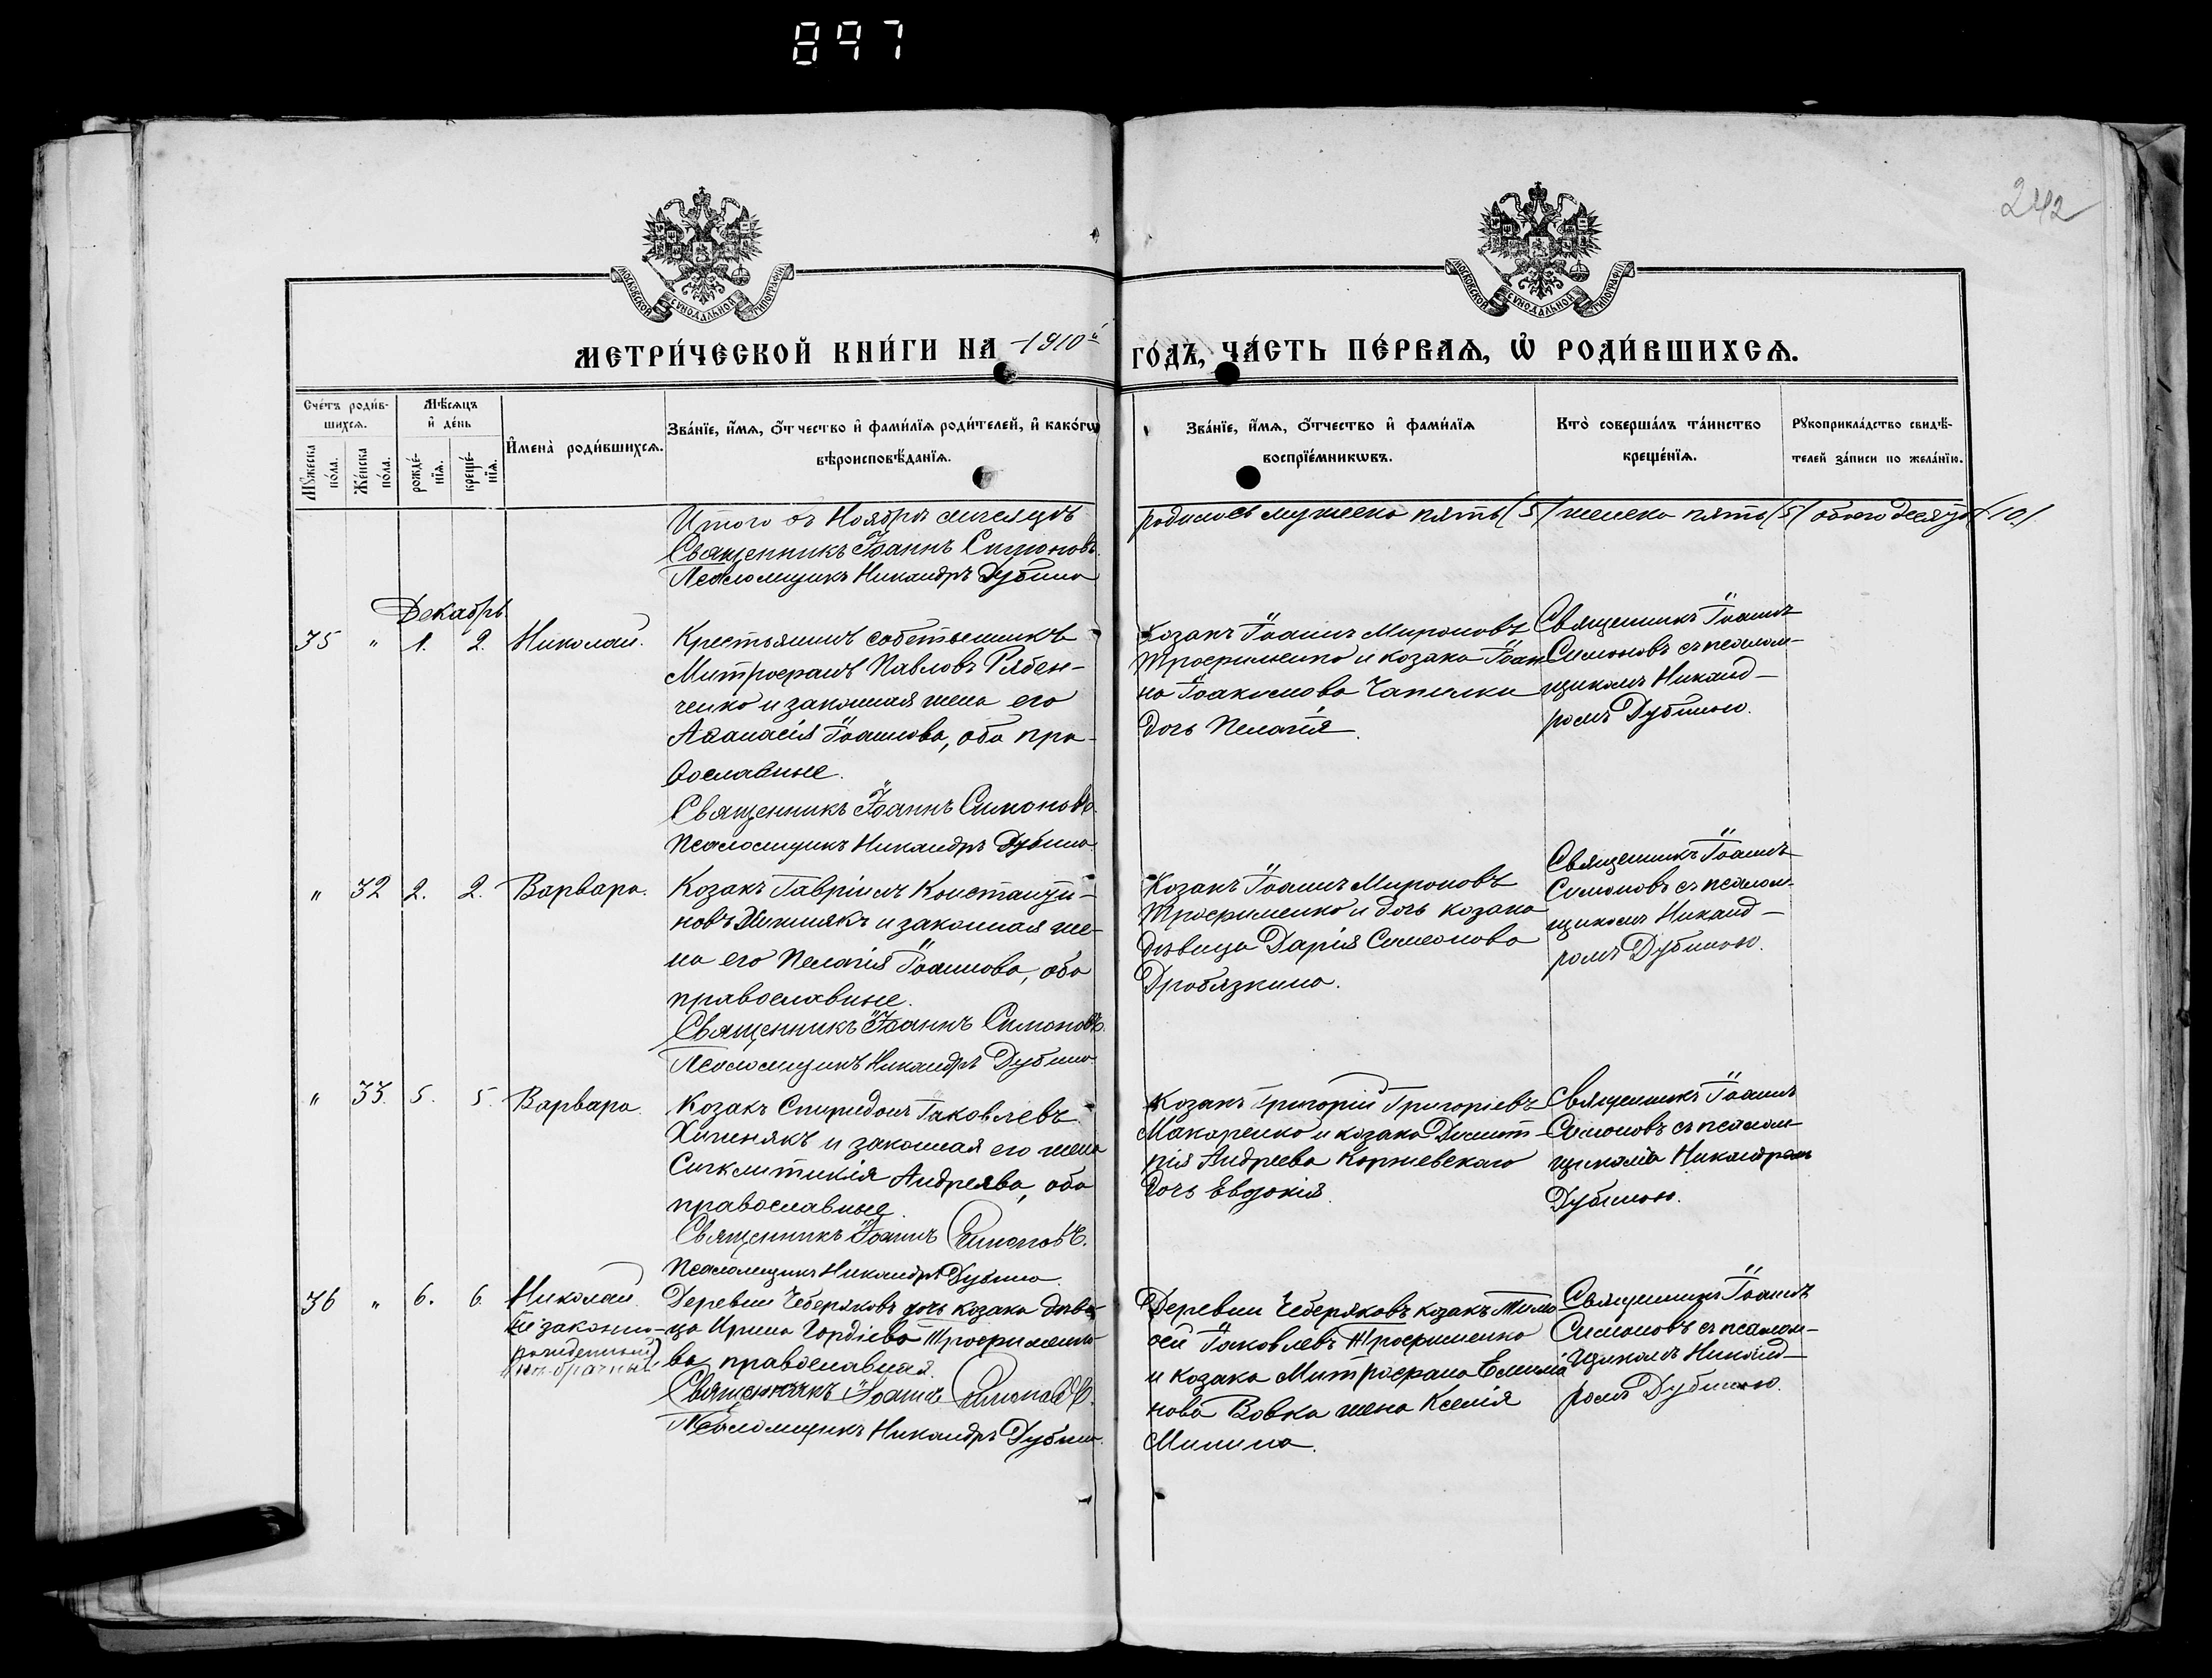 897
242
МОСКОВСКОЙ СѴНОДАЛЬНОЙ ТИПОГРАФІИ
МОСКОВСКОЙ СѴНОДАЛЬНОЙ ТИПОГРАФІИ
МЕТРИ́ЧЕСКОЙ КНИ́ГИ НА 1910й ГО́ДЪ, ЧА́СТЬ ПЕ́РВАѦ, Ѡ҆ РОДИ́ВШИХСѦ.
Сче́тъ роди́в-
шихсѧ.
Мѹжеска по́ла.
Же́нска по́ла.
Мѣ́сѧцъ
и҆ де́нь
рожде́-
нїѧ.
креще́-
нїѧ.
И҆мена̀ роди́вшихсѧ.
Зва́нїе, и҆́мѧ, ѻ҆́тчество и҆ фами́лїѧ роди́телей, и҆ како́гѡ
вѣроисповѣ́данїѧ.
Зва́нїе, и҆́мѧ, ѻ҆́тчество и҆ фами́лїѧ
воспрїе́мникѡвъ.
Кто̀ соверша́лъ та́инство
креще́нїѧ.
Рѹкоприкла́дство свидѣ́-
телей за́писи по жела́нїю.
Итого въ Ноябрѣ мѣсяцѣ
родилось мужеска пять (5) женска пять (5) обоего десять (10)
Священникъ Іоаннъ Симоновъ.
Псаломщикъ Никандръ Дубина
Декабрь
35 " 1. 2. Николай.
Крестьянинъ собственникъ
Митрофанъ Павловъ Рябен-
ченко и законная жена его
Аѳанасія Іоаннова, оба пра-
вославные.
Священникъ Іоаннъ Симоновъ.
Псаломщикъ Никандръ Дубина
Козакъ Іоаннъ Мироновъ
Трофименко и козака Іоан
на Іоакимова Чапилки
дочь Пелагія.
Священникъ Іоаннъ
Симоновъ съ псалом-
щикомъ Никанд-
ромъ Дубиною.
" 32 2. 2. Варвара.
Козакъ Гавріилъ Константи-
новъ Хижнякъ и законная же-
на его Пелагія Іоаннова, оба
православные.
Священникъ Іоаннъ Симоновъ.
Псаломщикъ Никандръ Дубина.
Козакъ Іоаннъ Мироновъ
Трофименко и дочь козака
дѣвица Дарія Симеонова
Дробязкина.
Священникъ Іоаннъ
Симоновъ съ псалом-
щикомъ Никанд-
ромъ Дубиною.
" 33. 5. 5. Варвара.
Козакъ Спиридонъ Іаковлевъ
Хижнякъ и законная его жена
Синклитикія Андреева, оба
православные.
Священникъ Іоаннъ Симоновъ.
Псаломщикъ Никандръ Дубина.
Козакъ Григорій Григоріевъ
Макаренко и козака Димит-
рія Андреева Коржевскаго
дочь Евдокія.
Священникъ Іоаннъ
Симоновъ съ псалом
щикомъ Никандромъ
Дубиною.
36 " 6. 6. Николай.
незаконно-
рожденный
внѣбрачный
Деревни Чеберяковъ дочь козака дѣви-
ца Ирина Гордіева Трофименко-
ва православная.
Священникъ Іоаннъ Симоновъ.
Псаломщикъ Никандръ Дубина.
Деревни Чеберяковъ козакъ Тимо
ѳей Іаковлевъ Трофименко
и козака Митрофана Емилiа
нова Вовка жена Ксенія
Минина.
Священникъ Іоаннъ
Симоновъ съ псалом-
щикомъ Никанд-
ромъ Дубиною.